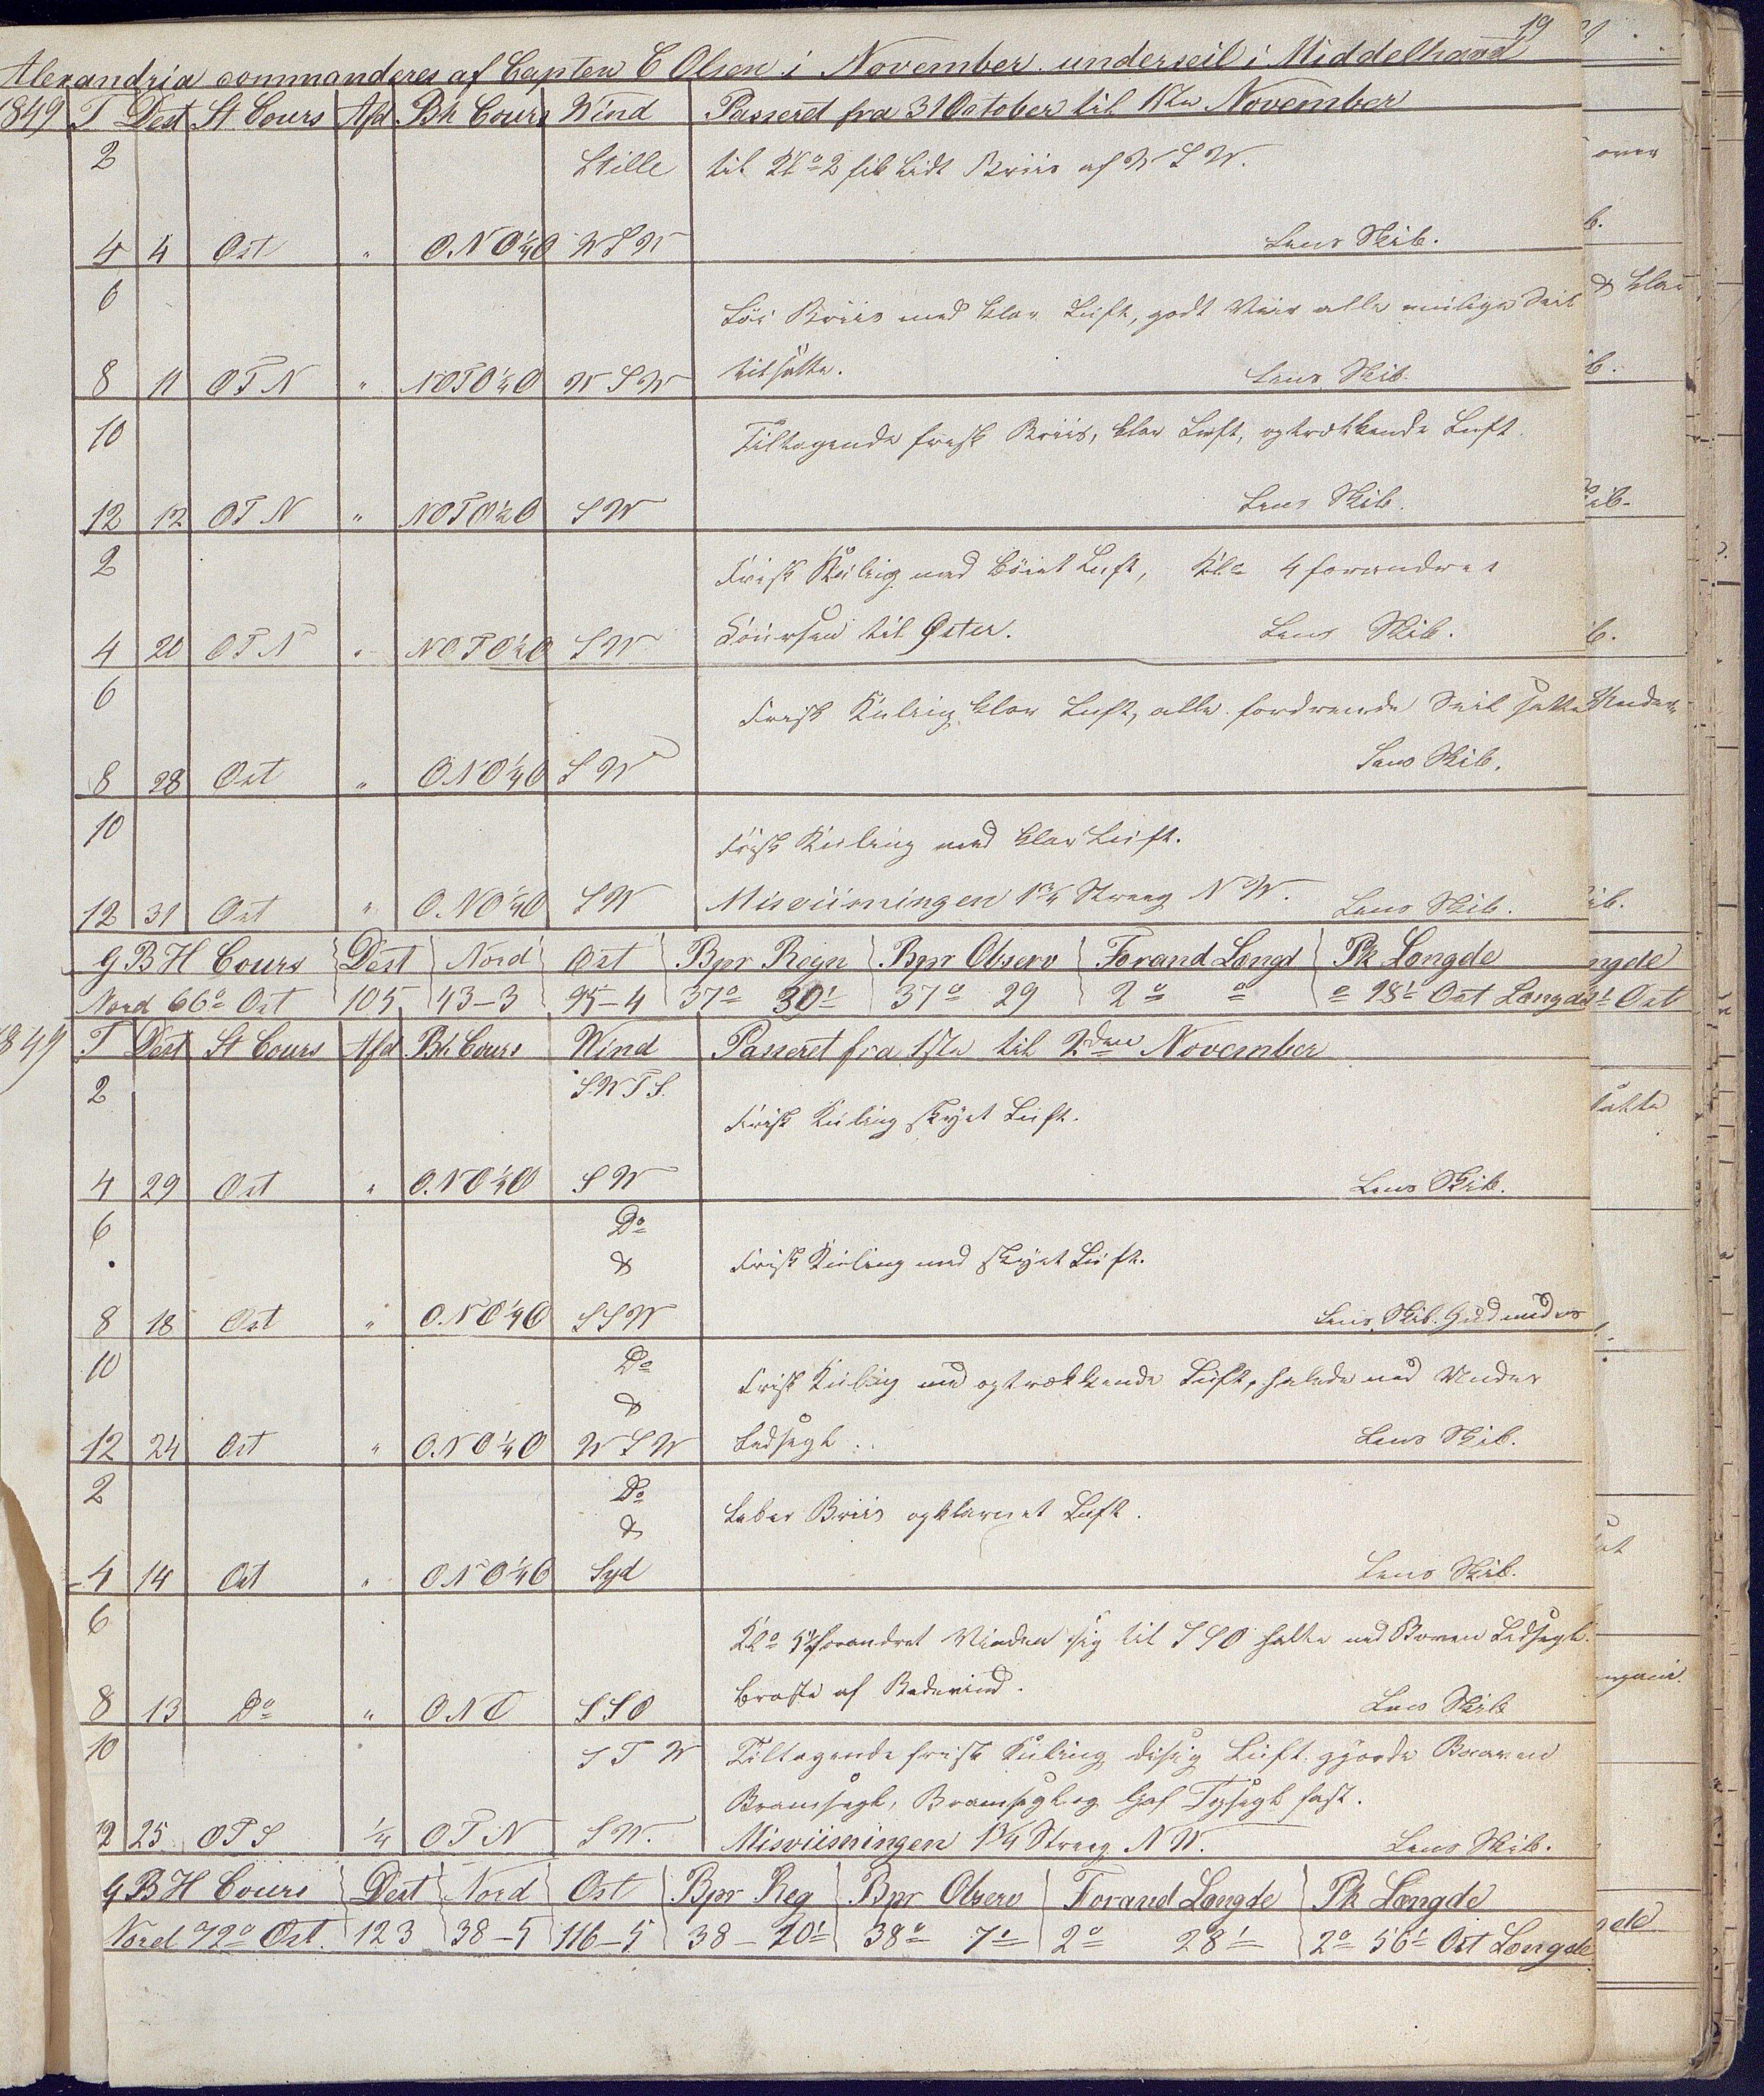 19
Alexandria commanderes af Capten C Olsen i November underseil i Middelhavet
1849 T Dest St Cours Afd Bh Cours Wind Passeret fra 31 October til 1ste November
2 Stille til Kl° 2 fik lidt Briis af W S W.
4 4 Ost " O.N O ¼ O W S W Lens Skib.
6 Löi Briis med klar Luft, godt Veir alle mulige Seil
8 11 O T N " N O T O ¼ O W S W tilsatte. Lens Skib.
10 Tiltagende frisk Briis, klar Luft, optrækkende Luft.
12 12 O T N " N O T O ½ O S W Lens Skib.
2 Frisk Kuling med böiet Luft, Kl° 4 forandret
4 20 O T N " N O T O ½ O S W Coursen til Öster. Lens Skib.
6 Frisk Kuling klar Luft, alle fordrende Seil satte
8 28 Ost " O N O ¼ O S W Lens Skib.
10 Frisk Kuling med klar Luft.
12 31 Ost " O. N O ¼ O S W Misviisningen 1¾ Streeg N W. Lens Skib.
G B H Cours Dest Nord Ost Bpr Regn Bpr Observ Forand Longd Pk Longde
Nord 66° Ost 105 43-3 95-4 37° 30' 37° 29 2° ° ° 28' Ost Længde
1849 T Dest St Cours Afd Bh Cours Wind Passeret fra 1ste til 2den November
2 S.W T S.
Frisk Kuling skyet Luft.
4 29 Ost " O. N O ¼ O S W Lens Skib.
6 D°
& Frisk Kuling med skyet Luft.
8 18 Ost " O. N O ¼ O S S W Lens Skib.
10 D° Frisk Kuling med optrækkende Luft, halede ned Under
&
12 24 Ost " O. N O ¼ O W S W Ledsegl. Lens Skib.
2 D° Laber Briis opklarnet Luft.
&
4 14 Ost " O N O ¼ O Syd Lens Skib.
6 Kl° 5½ forandret Vinden sig til S S O halte ned Boven Ledsegl.
8 13 D° " O N O S S O braste af Bidevind. Lens Skib
10 S T W Tiltagende frisk Kuling disig Luft. gjorde Boven
Bramsegl, Bramsegl og Gaf Topsegl fast.
12 25 O T S ¼ O T N S W. Misviisningen 1¾ Streeg N W. Lens Skib.
G B H Cours Dest Nord Ost Bpr Reg Bpr Observ Forand Longde Pk Længde
Nord 72° Ost. 123 38-5 116-5 38-20' 38° 7' 2° 28' 2° 56' Ost Longde